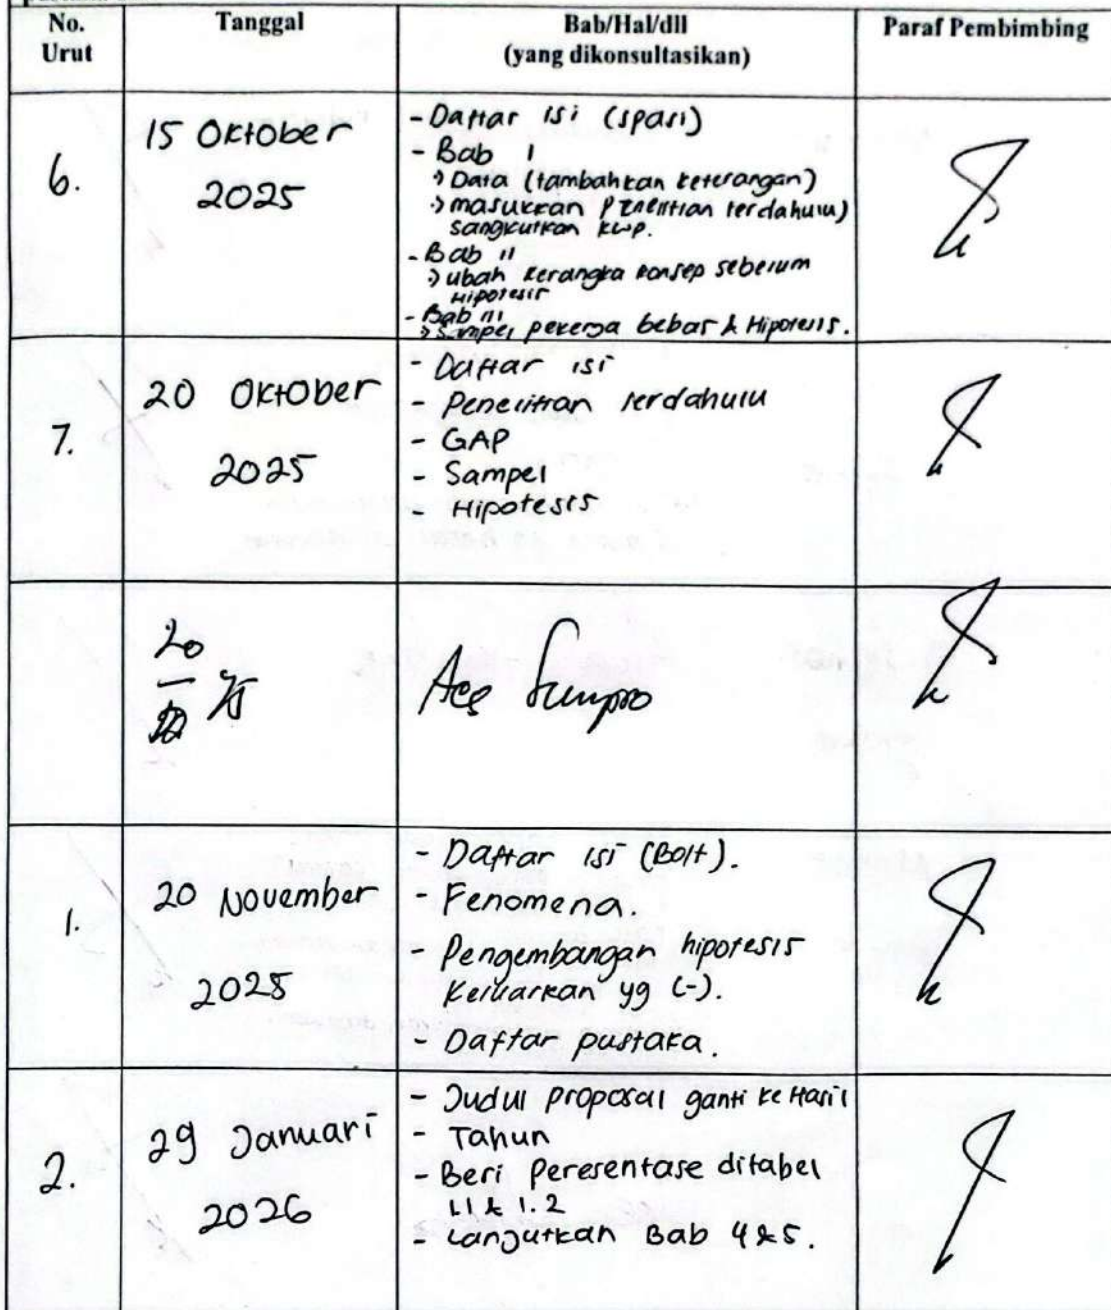 No. Urut
Tanggal
Bab/Hal/dll
(yang dikonsultasikan)
Paraf Pembimbing
6.
15 Oktober
2025
- Daftar isi (spasi)
- Bab I
→ Data (tambahkan keterangan)
→ masukkan Penelitian terdahulu)
sangkutkan kwp.
- Bab II
→ ubah kerangka konsep sebelum
Hipotesis
- Bab III
→ Sampel pekerja bebas & Hipotesis.
7.
20 Oktober
2025
- Daftar isi
- Penelitian terdahulu
- GAP
- Sampel
- Hipotesis
20
Acc Sempro
1.
20 November
2025
- Daftar isi (Bolt).
- Fenomena.
- Pengembangan hipotesis
Keluarkan yg (-).
- Daftar pustaka.
2.
29 Januari
2026
- Judul proposal ganti ke Hasil
- Tahun
- Beri peresentase ditabel
1.1 & 1.2
- Lanjutkan Bab 4 & 5.